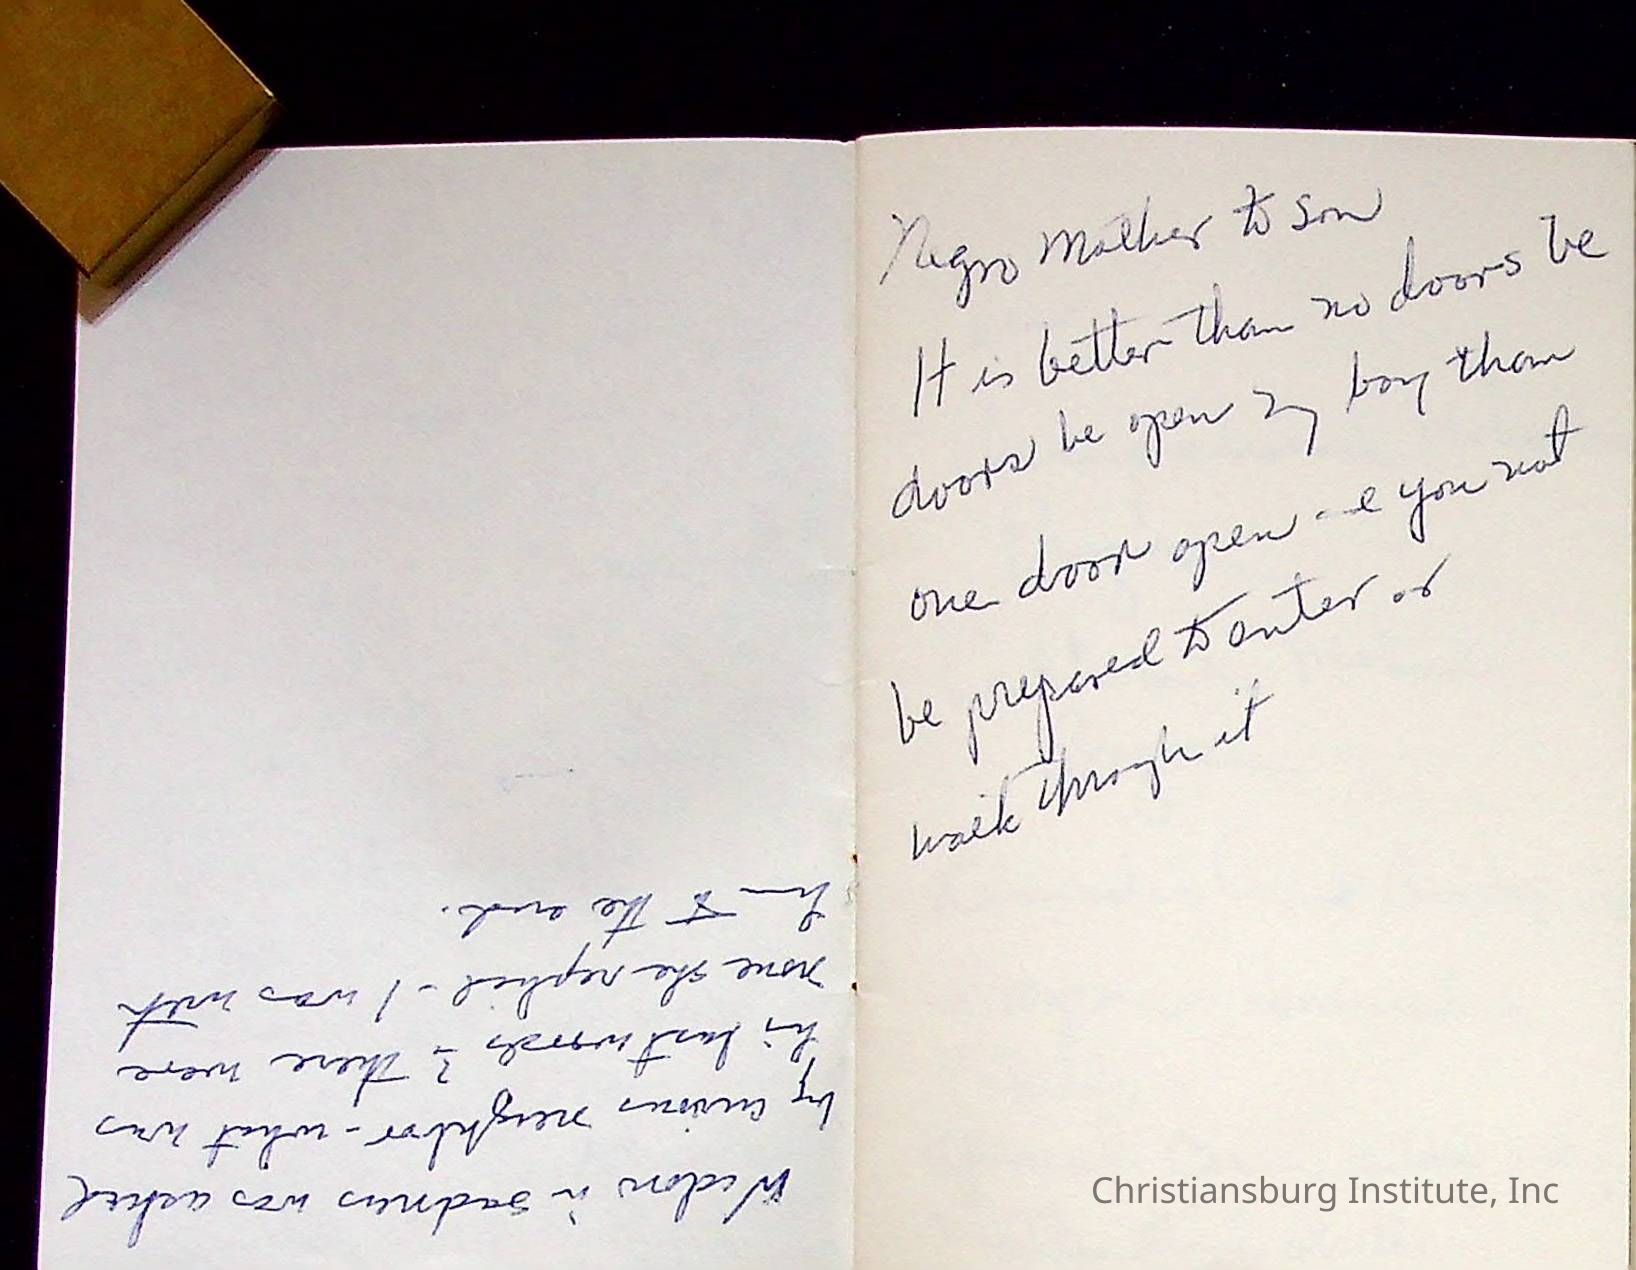 Widow in sadness was asked
by curious neighbor - what was
his last words? there were
none she replied - I was with
him to the end.
Negro Mother to son
It is better than no doors be
doors be open my boy than
one door open and you not
be prepared to enter or
walk through it
Christiansburg Institute, Inc